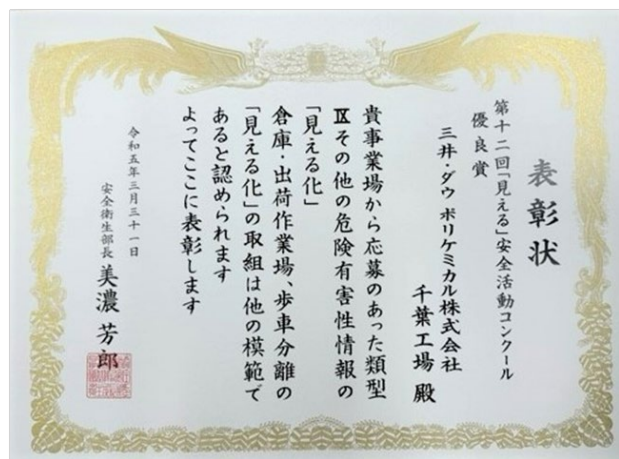 表彰状
第十二回「見える」安全活動コンクール
優良賞
三井・ダウ ポリケミカル株式会社
千葉工場 殿
貴事業場から応募のあった類型
Ⅸその他の危険有害性情報の
「見える化」
倉庫・出荷作業場、歩車分離の
「見える化」の取組は他の模範で
あると認められます
よってここに表彰します
令和五年三月三十一日
安全衛生部長 美濃 芳郎